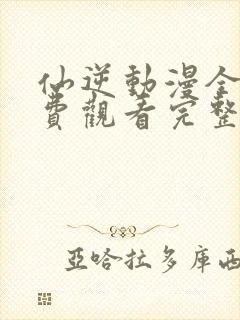 仙逆動漫全
費觀看完整
亞哈拉多庫西